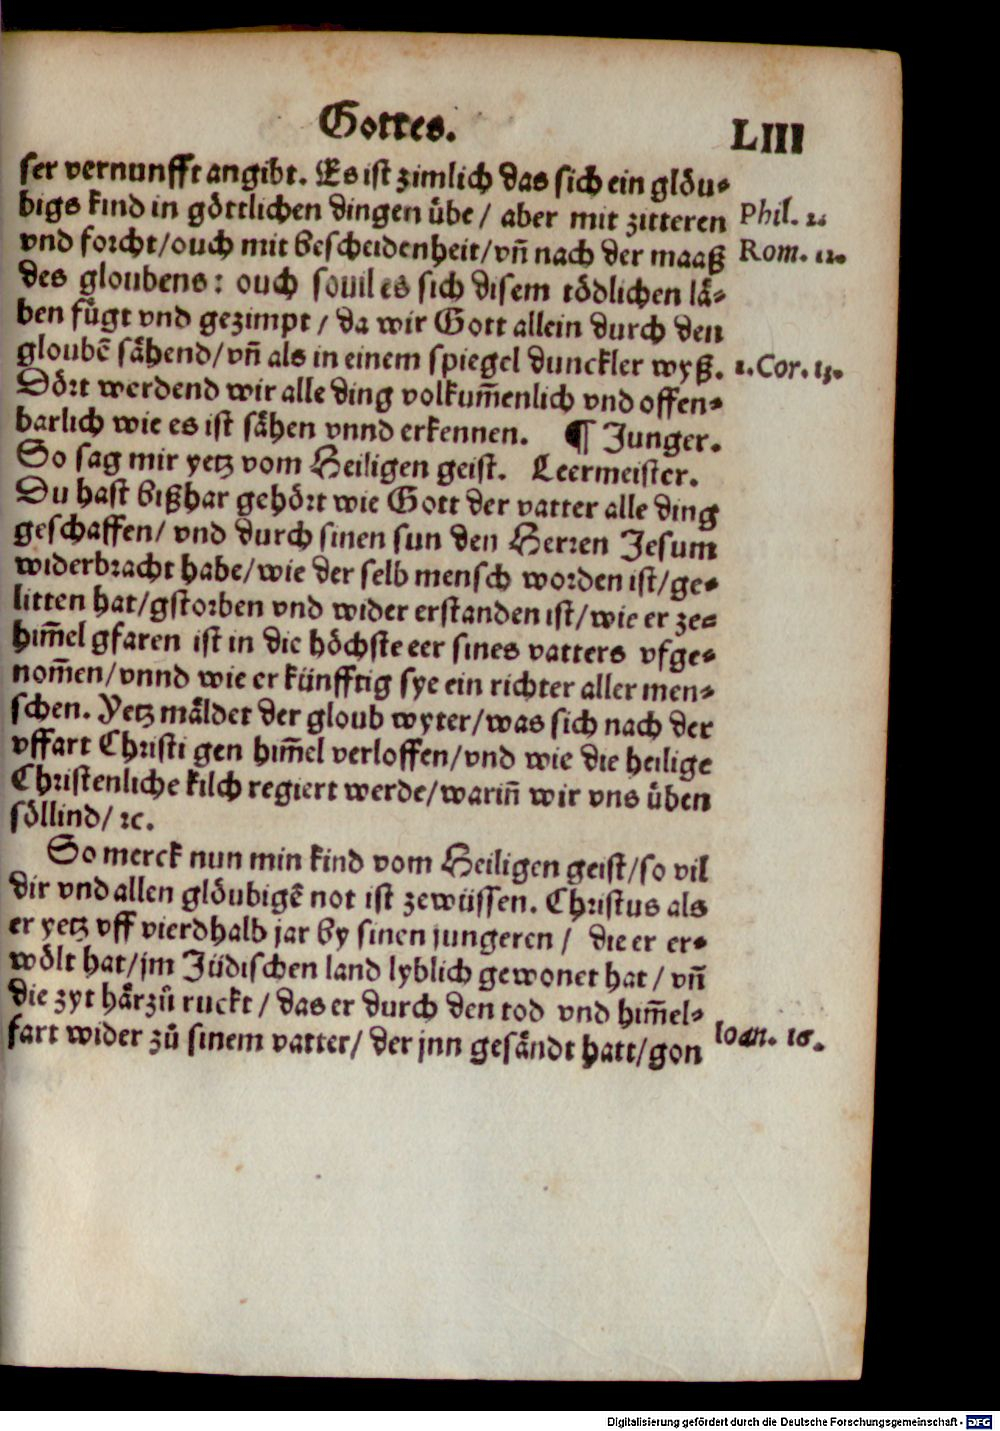 Gottes. LIII
ser vernunfft angibt. Es ist zimlich das sich ein glöu⸗
bigs kind in göttlichen dingen übe / aber mit zitteren Phil. 2.
vnd forcht/ouch mit bescheidenheit/vñ nach der maaß Rom. 12.
des gloubens: ouch souil es sich disem tödlichen lä⸗
ben fůgt vnd gezimpt / da wir Gott allein durch den
gloubē sähend/vñ als in einem spiegel dunckler wyß. 1.Cor. 13.
Dört werdend wir alle ding volkum̃enlich vnd offen⸗
barlich wie es ist sähen vnnd erkennen. ¶ Junger.
So sag mir yetz vom Heiligen geist. Leermeister.
Du hast bißhar gehört wie Gott der vatter alle ding
geschaffen/ vnd durch sinen sun den Herren Jesum
widerbracht habe/wie der selb mensch worden ist/ge⸗
litten hat/gstorben vnd wider erstanden ist/wie er ze⸗
him̃el gfaren ist in die höchste eer sines vatters vfge⸗
nom̃en/vnnd wie er künfftig sye ein richter aller men⸗
schen. Yetz mäldet der gloub wyter/was sich nach der
vffart Christi gen him̃el verloffen/vnd wie die heilige
Christenliche kilch regiert werde/warin̄ wir vns üben
söllind/ ꝛc.
So merck nun min kind vom Heiligen geist/so vil
dir vnd allen glöubigē not ist zewüssen. Christus als
er yetz vff vierdhalb jar by sinen jungeren / die er er⸗
wölt hat/jm Jüdischen land lyblich gewonet hat / vñ
die zyt härzů ruckt / das er durch den tod vnd him̃el⸗
fart wider zů sinem vatter/ der jnn gesändt hatt/gon Ioan. 16.
Digitalisierung gefördert durch die Deutsche Forschungsgemeinschaft - DFG